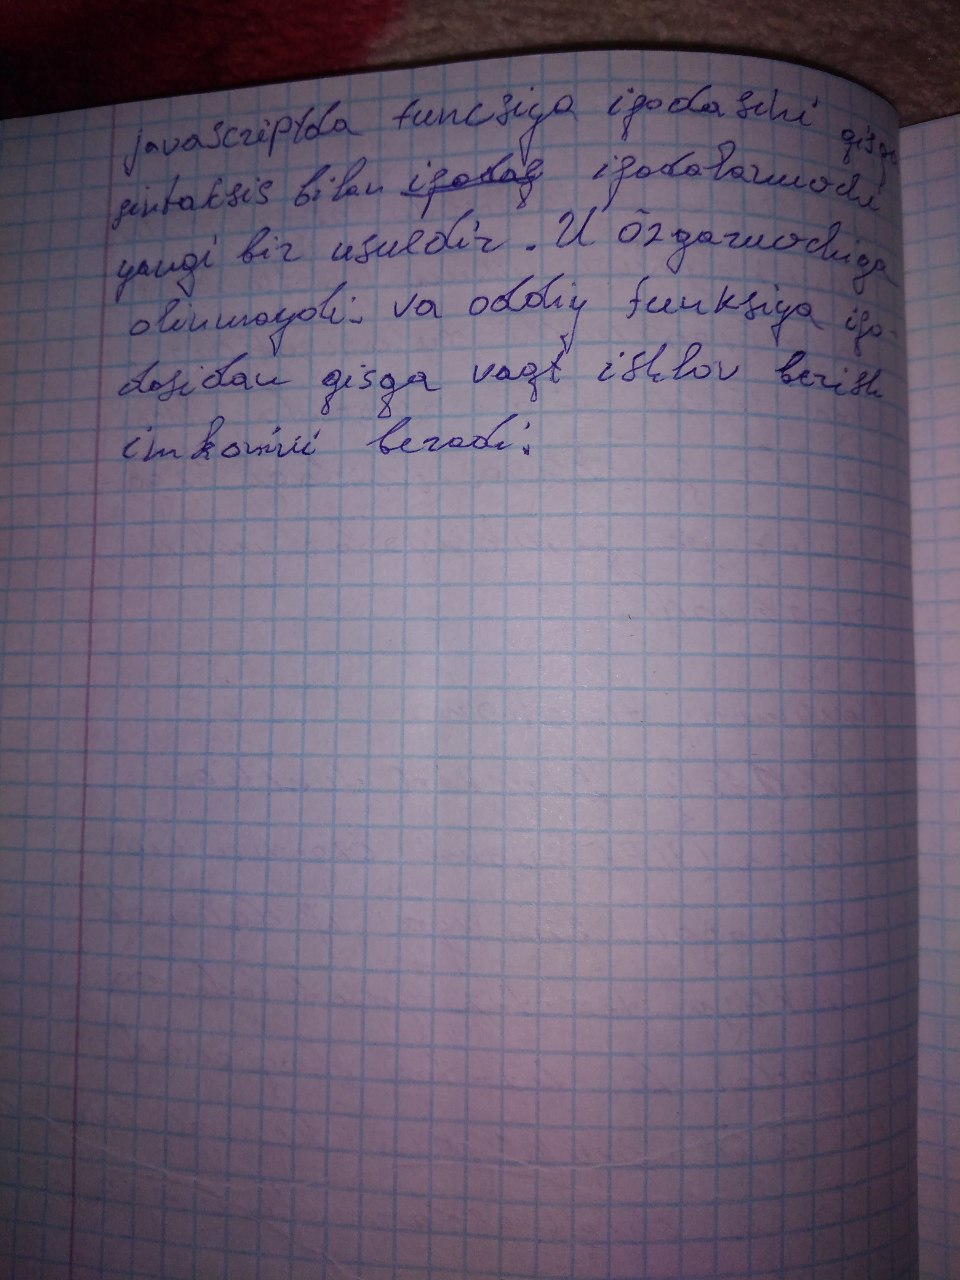 javascriptda funcsiya ifodasini qisqa
sintaksis bilan ifodalarmodi
yangi bir usuldir. U õzgarmochiga
olinmaydi. va oddiy funksiya ifo-
dasidan qisqa vaqt ishlov berish
imkonini beradi.